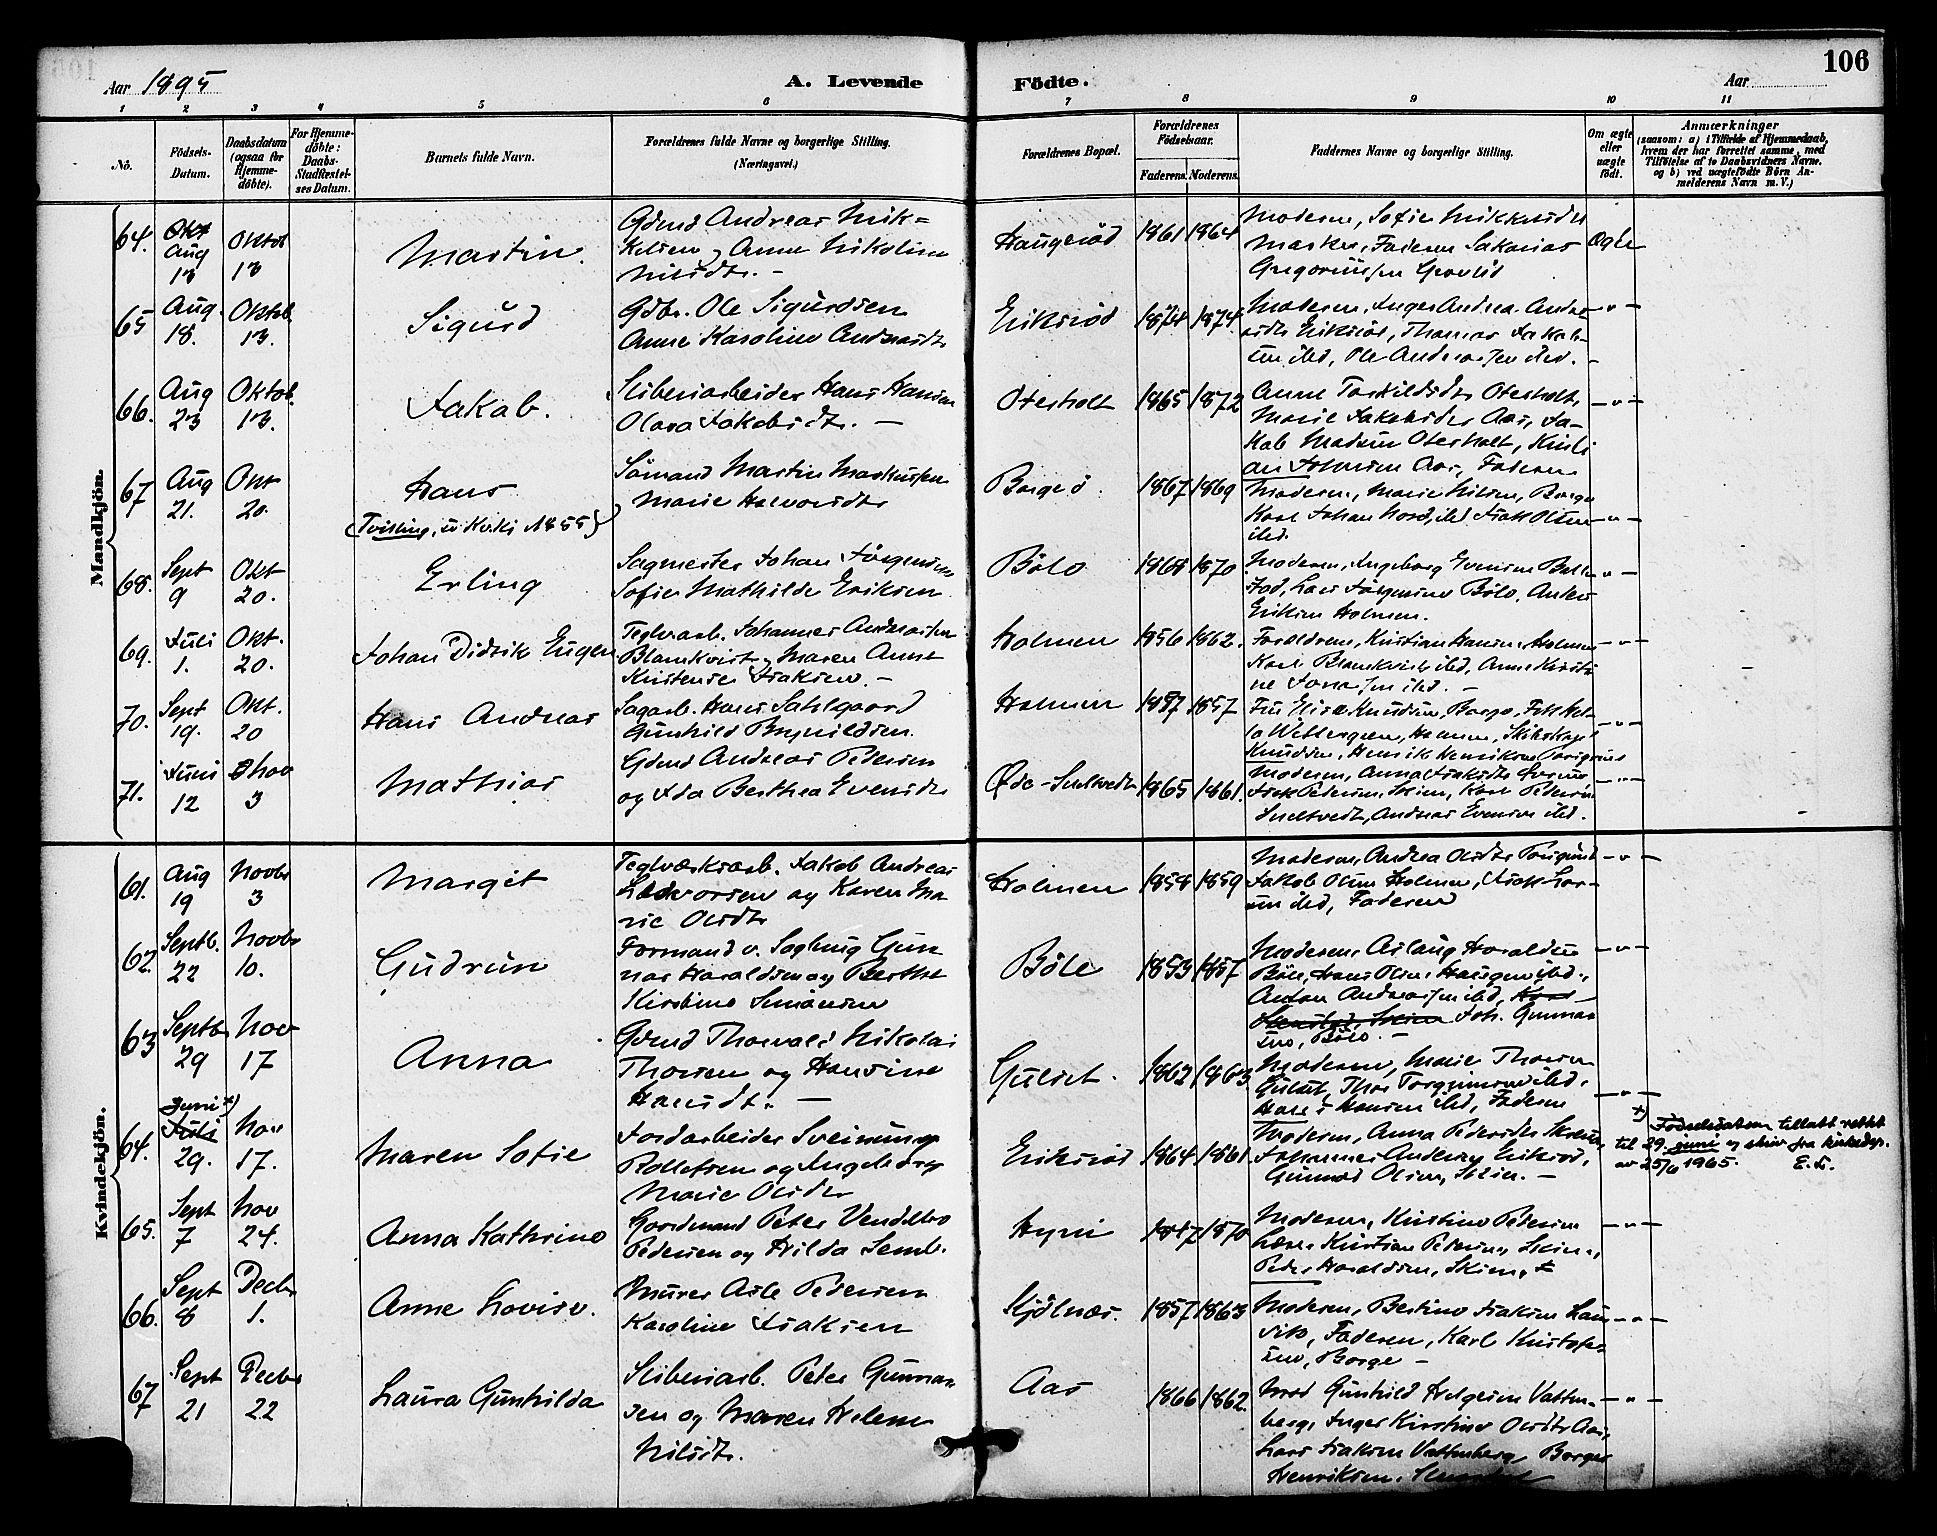 106
Aar 1895
A. Levende Födte.
Aar
1 2 3 4 5 6 7 8 9 10 11
No.
Födsels-Datum.
Daabsdatum (ogsaa for Hjemmedöbte).
For Hjemmedöbte: Daabs-Stadfæstelses Datum.
Barnets fulde Navn.
Forældrenes fulde Navne og borgerlige Stilling. (Næringsvei.)
Forældrenes Bopæl.
Forældrenes Födselsaar.
Faderens. Moderens.
Faddernes Navne og borgerlige Stilling.
Om ægte eller uægte födt.
Anmærkninger
(saasom: a) i Tilfælde af Hjemmedaab, hvem der har forrettet samme, med Tilföielse af to Daabsvidners Navne, og b) ved uægtefödte Börn Anmelderens Navn m. V.)
Mandkjön.
64. Aug 13 Oktob 13 Martin Gdmd Andreas Mik=
kelsen og Anne Nikoline
Nilsdtr. —
Haugerød 1861 1864 Moderen, Sofie Mikkelsdtr
Faderen Sakarias
Gregoriussen Ægte
65 Aug. 18. Oktob. 13. Sigurd Gdbr. Ole Sigurdsen
Anne Karoline Andreasdtr
Eriksrød 1874 1874 Moderen, Inger Andrea Andre
asdtr Eriksrød, Thomas Jakob-
sen ibd, Ole Andreassen ibd. — — " —
66. Aug 23 Oktob. 13. Jakob. Sliberiarbeider Hans Hansen
Olava Jakobsdtr. —
Oterholt 1865 1872 Anne Torkildsdtr Oterholt,
Marie Jakobsdtr Aas, Ja-
kob Madsen Oterholt, Kristi
an Johnsen Aas, Faderen — " —
67 Aug 21. Okt 20. Hans
(Tvilling, u Kvkj № 55)
Sömand Martin Markussen
Marie Halvorsdtr
Borge 1867 1869 Moderen, Marie Nilsen, Borge
Karl Johan Nord, ibd Isak Olsen
ibd. — " —
68. Sept 9 Okt 20. Erling Sagmester Johan Jörgensen
Sofie Mathilde Eriksen
Böle 1868 1870. Moderen, Ingeborg Evensen
Lars Jörgensen Böle, Anders
Eriksen Holmen. — " —
69. Juli 1. Okt. 20. Johan Didrik Eugen Teglverarb. Johannes Andreassen
Blomkvist og Maren Anne
Kirstense Isaksen. —
Holmen 1856 1862. Forældrene, Kristian Hansen, Holmen
Karl Blomkvist ibd, Anne Kirsti
ne ibd. — — " —
70. Sept 19. Okt. 20 Hans Andreas Sagarb. Hans Sahlgaard
Gunhild Brynildsen.
Holmen 1857 1857 Fru Elise Knudsen, Borge,
Wettergreen, Holmen,
Knudsen, Henrik Henriksen — " —
71. Juni 12 Nov 3 Mathias Gdmd Andreas Pedersen
og Ida Berthea Evensdtr
Øde-Snelvedt 1865 1861. Moderen, Anna Isaksdtr
Isak Pedersen, Skien, Karl Pedersen
Snelvedt, Andreas Evensen ibd. — " —
Kvindekjön.
61. Aug 19 Novbr 3 Margit Teglværksarb. Jakob Andreas
Halvorsen og Karen Ma
rie Olsdtr
Holmen 1858 1859 Moderen, Andrea Olsdtr
Jakob Olsen Holmen, Isak Lar-
sen ibd, Faderen — " —
62. Septb. 22 Novbr 10. Gudrun Formand v. Sagbrug Gun
nar Haraldsen og Berthe
Kirstine Simonsen
Böle 1853 1857 Moderen, Aslaug Haraldsen
Böle, Hans Olsen, Haugen ibd.,
Anton Andreassen ibd, Joh. Gunnar
sen, Böle. — — " —
63 Septbr 29 Nov 17 Anna Gdmd Thorvald Nikolai
Thorsen og Hansine
Hansdtr. —
Gulset. 1862 1863. Moderen, Marie Thorsen
Gulset, Thor Torgrimsen ibd,
Hans Hansen ibd, Faderen — " —
64. Juni +) Juli 29. Nov 17. Maren Sofie Jordarbeider Sveinung
Rollefsen og Ingeborg
Marie Olsdtr
Eriksrød 1864 1861 Moderen, Anna Pedersdtr Skien,
Johannes Andersen Eriksrød,
Gunnar Olsen, Skien. — — " —
+) Fødselsdatoen tillatt rettet
til 29. juni og skriv fra kirkedep.
av 25/6 1965. E.L.
65. Sept 7 Nov 24. Anna Kathrine Gaardmand Peter Vendelbo
Pedersen og Hilda Semb.
Hyni 1847 1870 Moderen, Kristine Pedersen
Kristian Pedersen, Skien,
Peder Haraldsen, Skien, — " —
66. Sept 8 Decbr 1. Anne Lovise. Murer Asle Pedersen
Karoline Isaksen
Kjölnæs. 1857 1863 Moderen, Bertine Isaksen
Faderen, Karl Kristofer
sen, Borge — — " —
67 Sept 21 Decbr 22 Laura Gunhilda Sliberiarb. Peter Gunnar
sen og Maren Helene
Nilsdtr.
Aas 1866 1862. Mod Gunhild Helgesen Vatten-
berg, Inger Kirstine Olsdtr Aas,
Lars Isaksen Vattenberg Borger
Henriksen. — " —